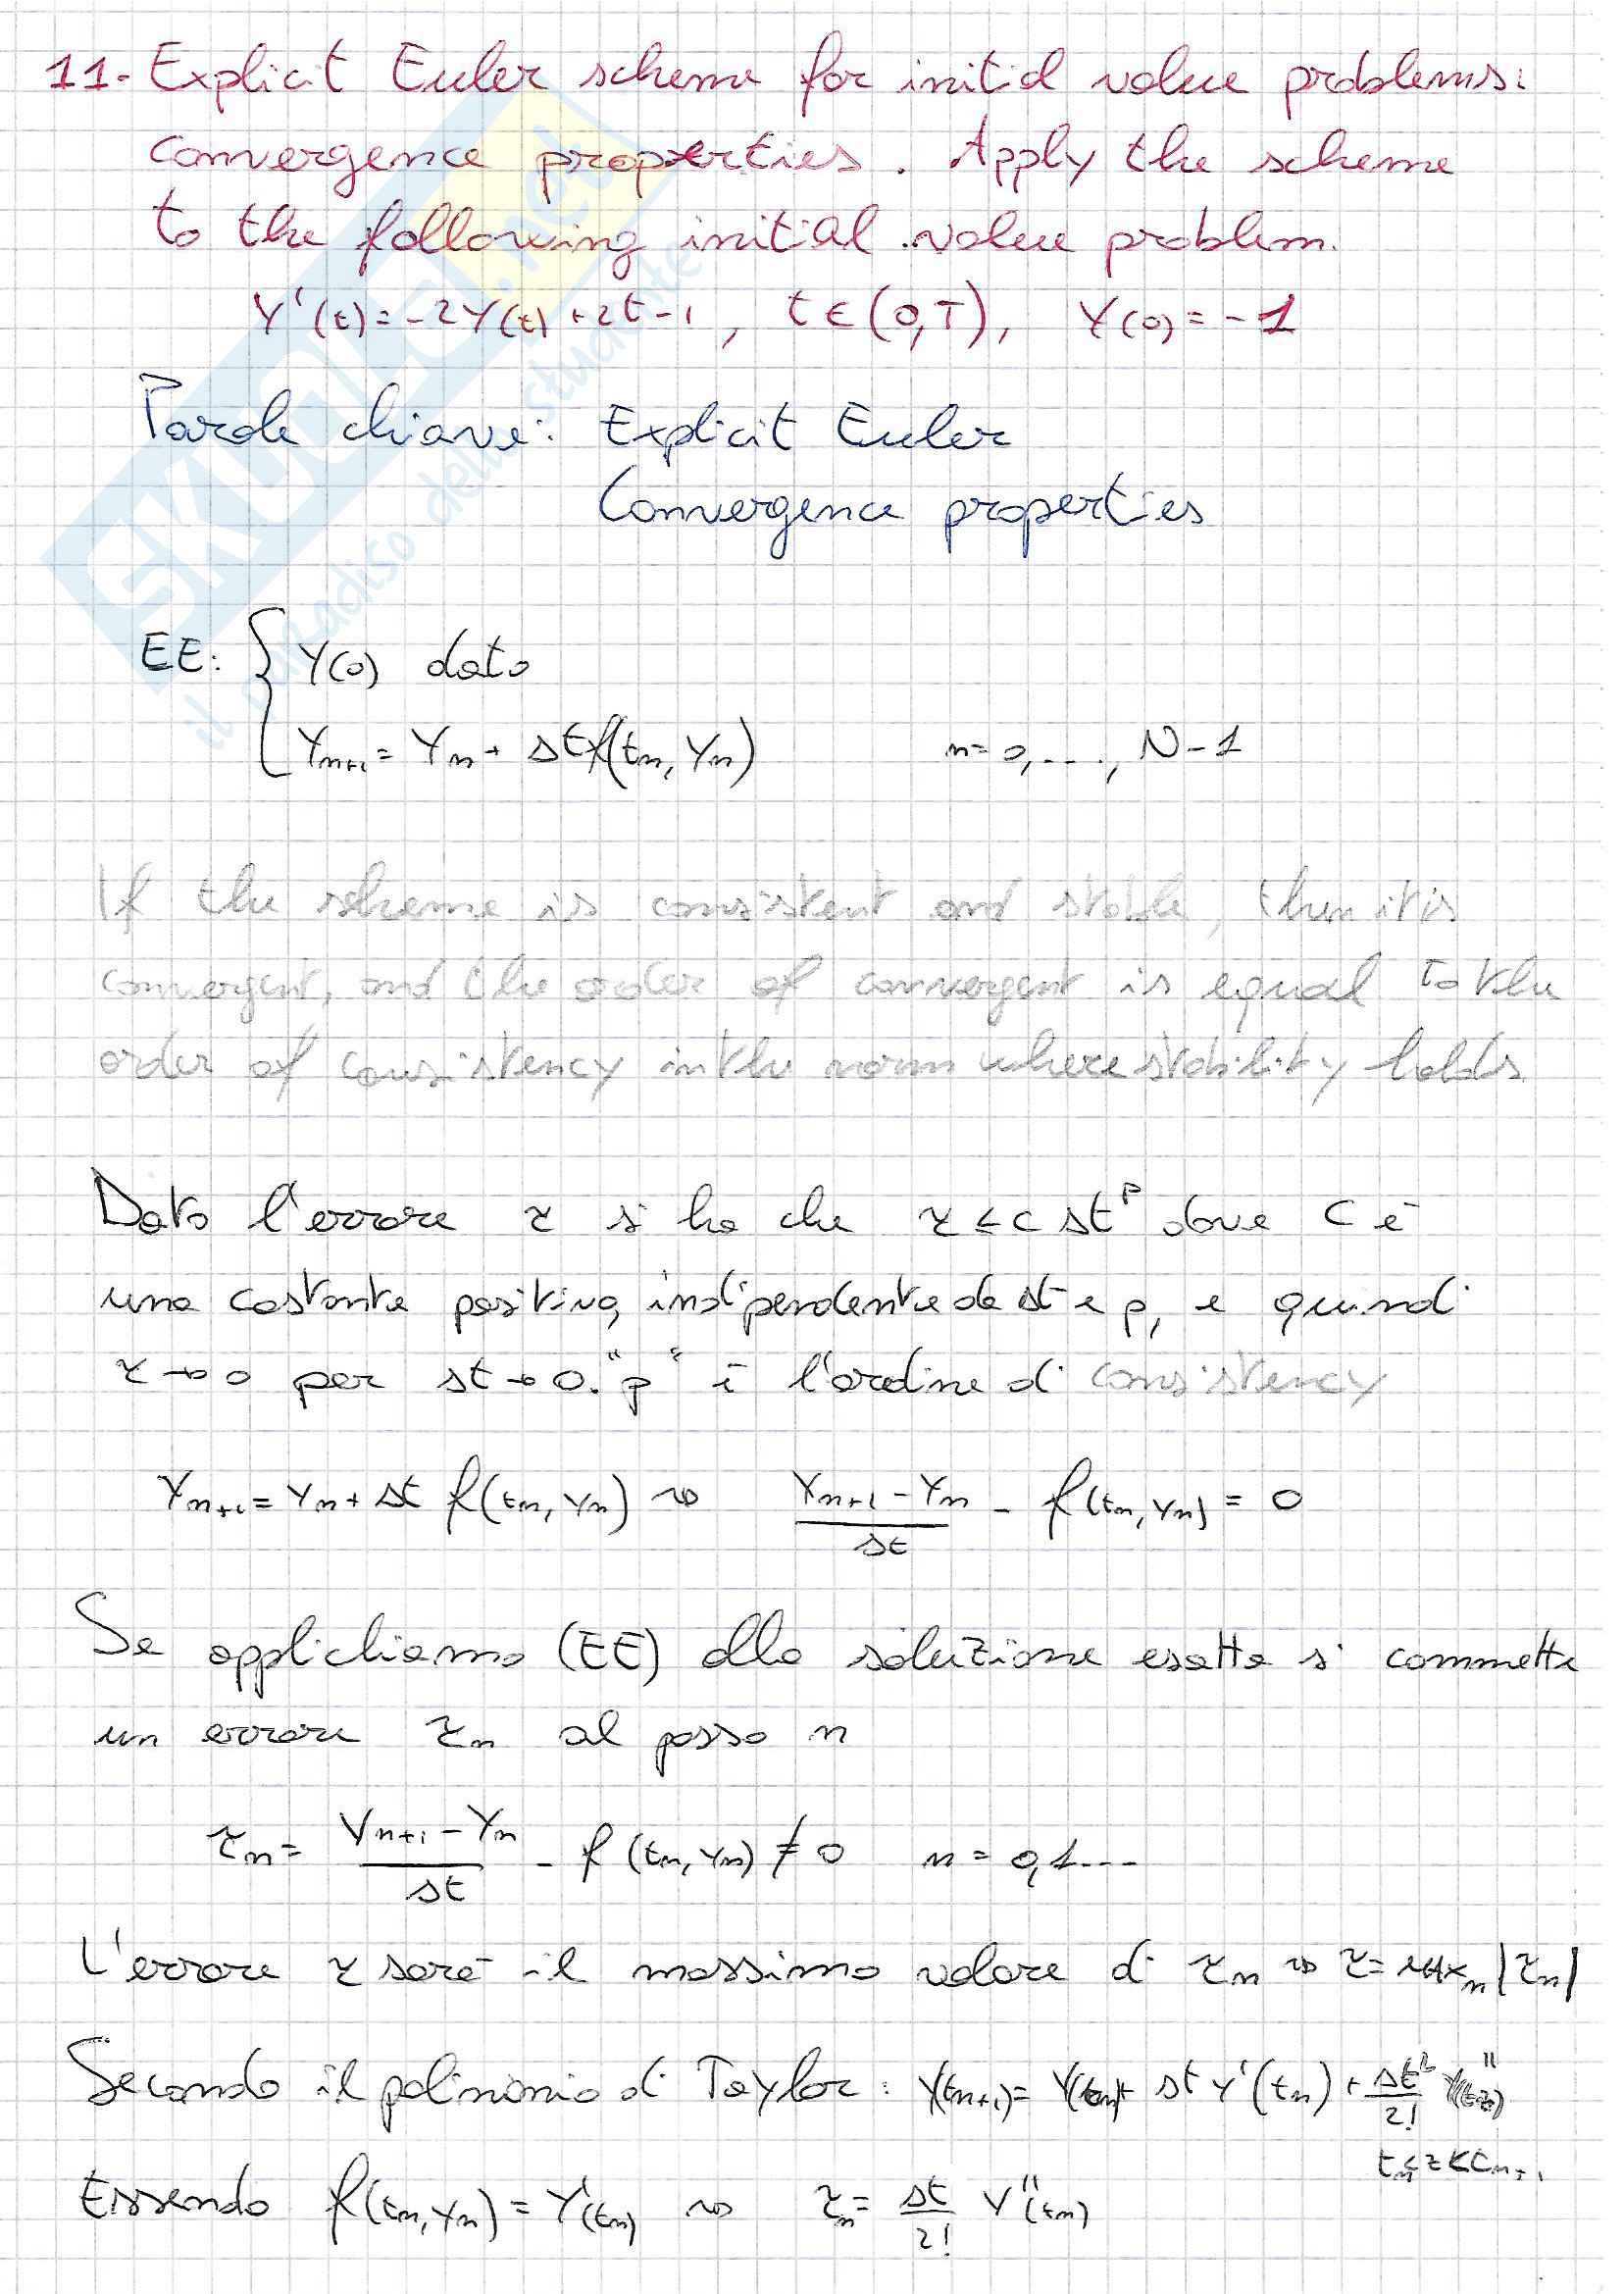 11- Explicit Euler scheme for initial value problems:
convergence properties. Apply the scheme
to the following initial value problem.
Y'(t)=-2Y(t)+2t-1, t∈(0,T), Y(0)=-1
Parole chiave: Explicit Euler
Convergence properties
EE: { Y(0) dato
Yn+1 = Yn + Δt f(tn, Yn) n=0,...., N-1
If the scheme is consistent and stable, then it is
convergent, and the order of convergent is equal to the
order of consistency in the norm where stability holds
Dato l'errore τ si ha che τ ≤ C Δt^p dove C è
una costante positiva, indipendente da Δt e p, e quindi
τ→0 per Δt→0. "p" è l'ordine di consistency
Yn+1 = Yn + Δt f(tn, Yn) ⇝ (Yn+1 - Yn)/Δt - f(tn, Yn) = 0
Se applichiamo (EE) alla soluzione esatta si commette
un errore τn al passo n
τn = (Yn+1 - Yn)/Δt - f(tn, Yn) ≠ 0 n = 0,1....
L'errore τ sarà il massimo valore di τn ⇝ τ = MAXn |τn|
Secondo il polinomio di Taylor: Y(tn+1) = Y(tn) + Δt Y'(tn) + Δt²/2! Y''(tz)
tn<z<tn+1
Essendo f(tn, Yn) = Y'(tn) ⇝ τn = Δt/2! Y''(tn)
SKUOLA.net
il paradiso dello studente